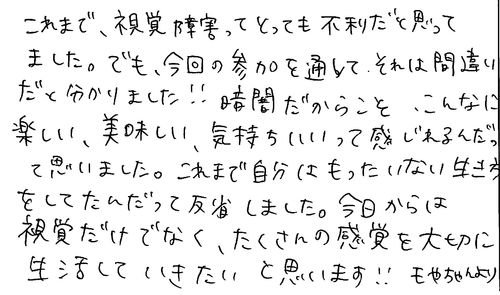 これまで、視覚障害ってとっても不利だと思って
ました。でも、今回の参加を通して、それは間違い
だと分かりました!!暗闇だからこと、こんなに
楽しい、美味しい、気持ちいいって感じれるんだっ
て思いました。これまで自分はもったいない生き方
をしてたんだって反省しました。今日からは
視覚だけでなく、たくさんの感覚を大切に
生活していきたいと思います!! もやちゃんより